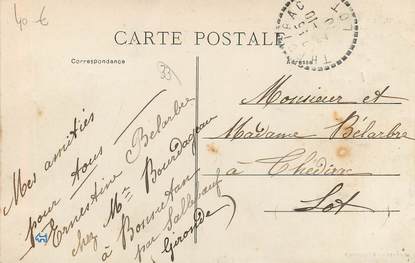 40 €
CARTE POSTALE
Correspondance
Adresse
33
LOT
Mes amitiés
pour tous
Ernestine Bélarbre
chez Mme Bourdageau
à
par Sallebœuf
Gironde
Monsieur et
Madame Bélarbre
à Thédirac
Lot